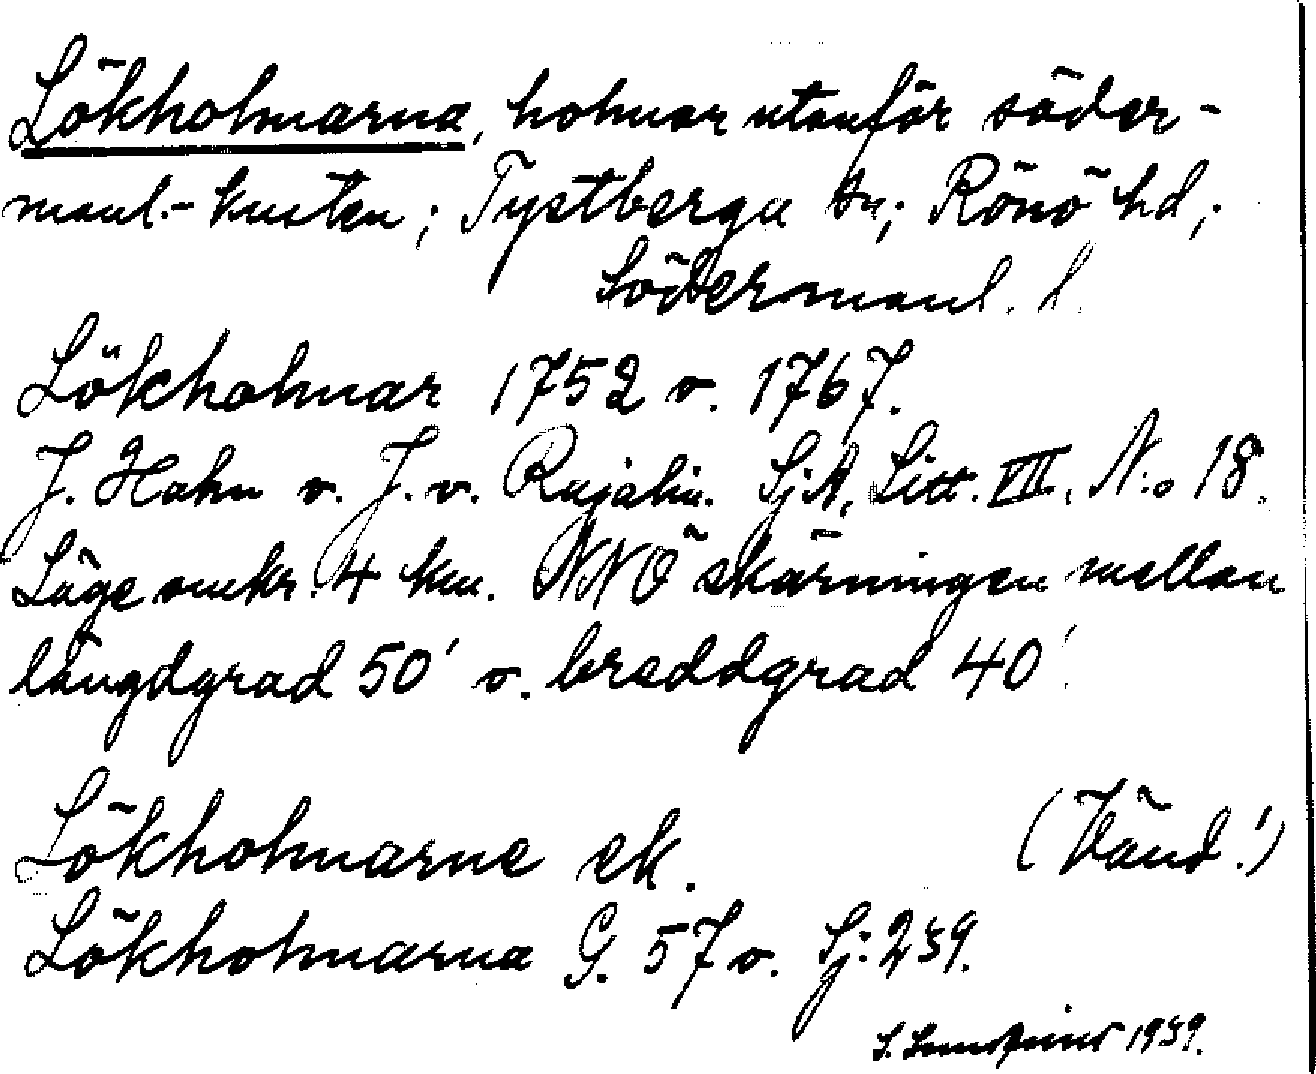 Lökholmarna, holmar utanför söder-
manl.- kusten; Tystberga sn; Rönö hd;
Södermanl. l.
Lökholmar 1752 o. 1767.
J. Hahn o. J. v. Rajalin. SjA, Litt. VII, N:o 18.
Läge omkr. 4 km. NNÖ skärningen mellan
längdgrad 50' o. breddgrad 40'.
Lökholmarne ek. (Vänd!)
Lökholmarna G. 57 o. Sj: 239.
1939.